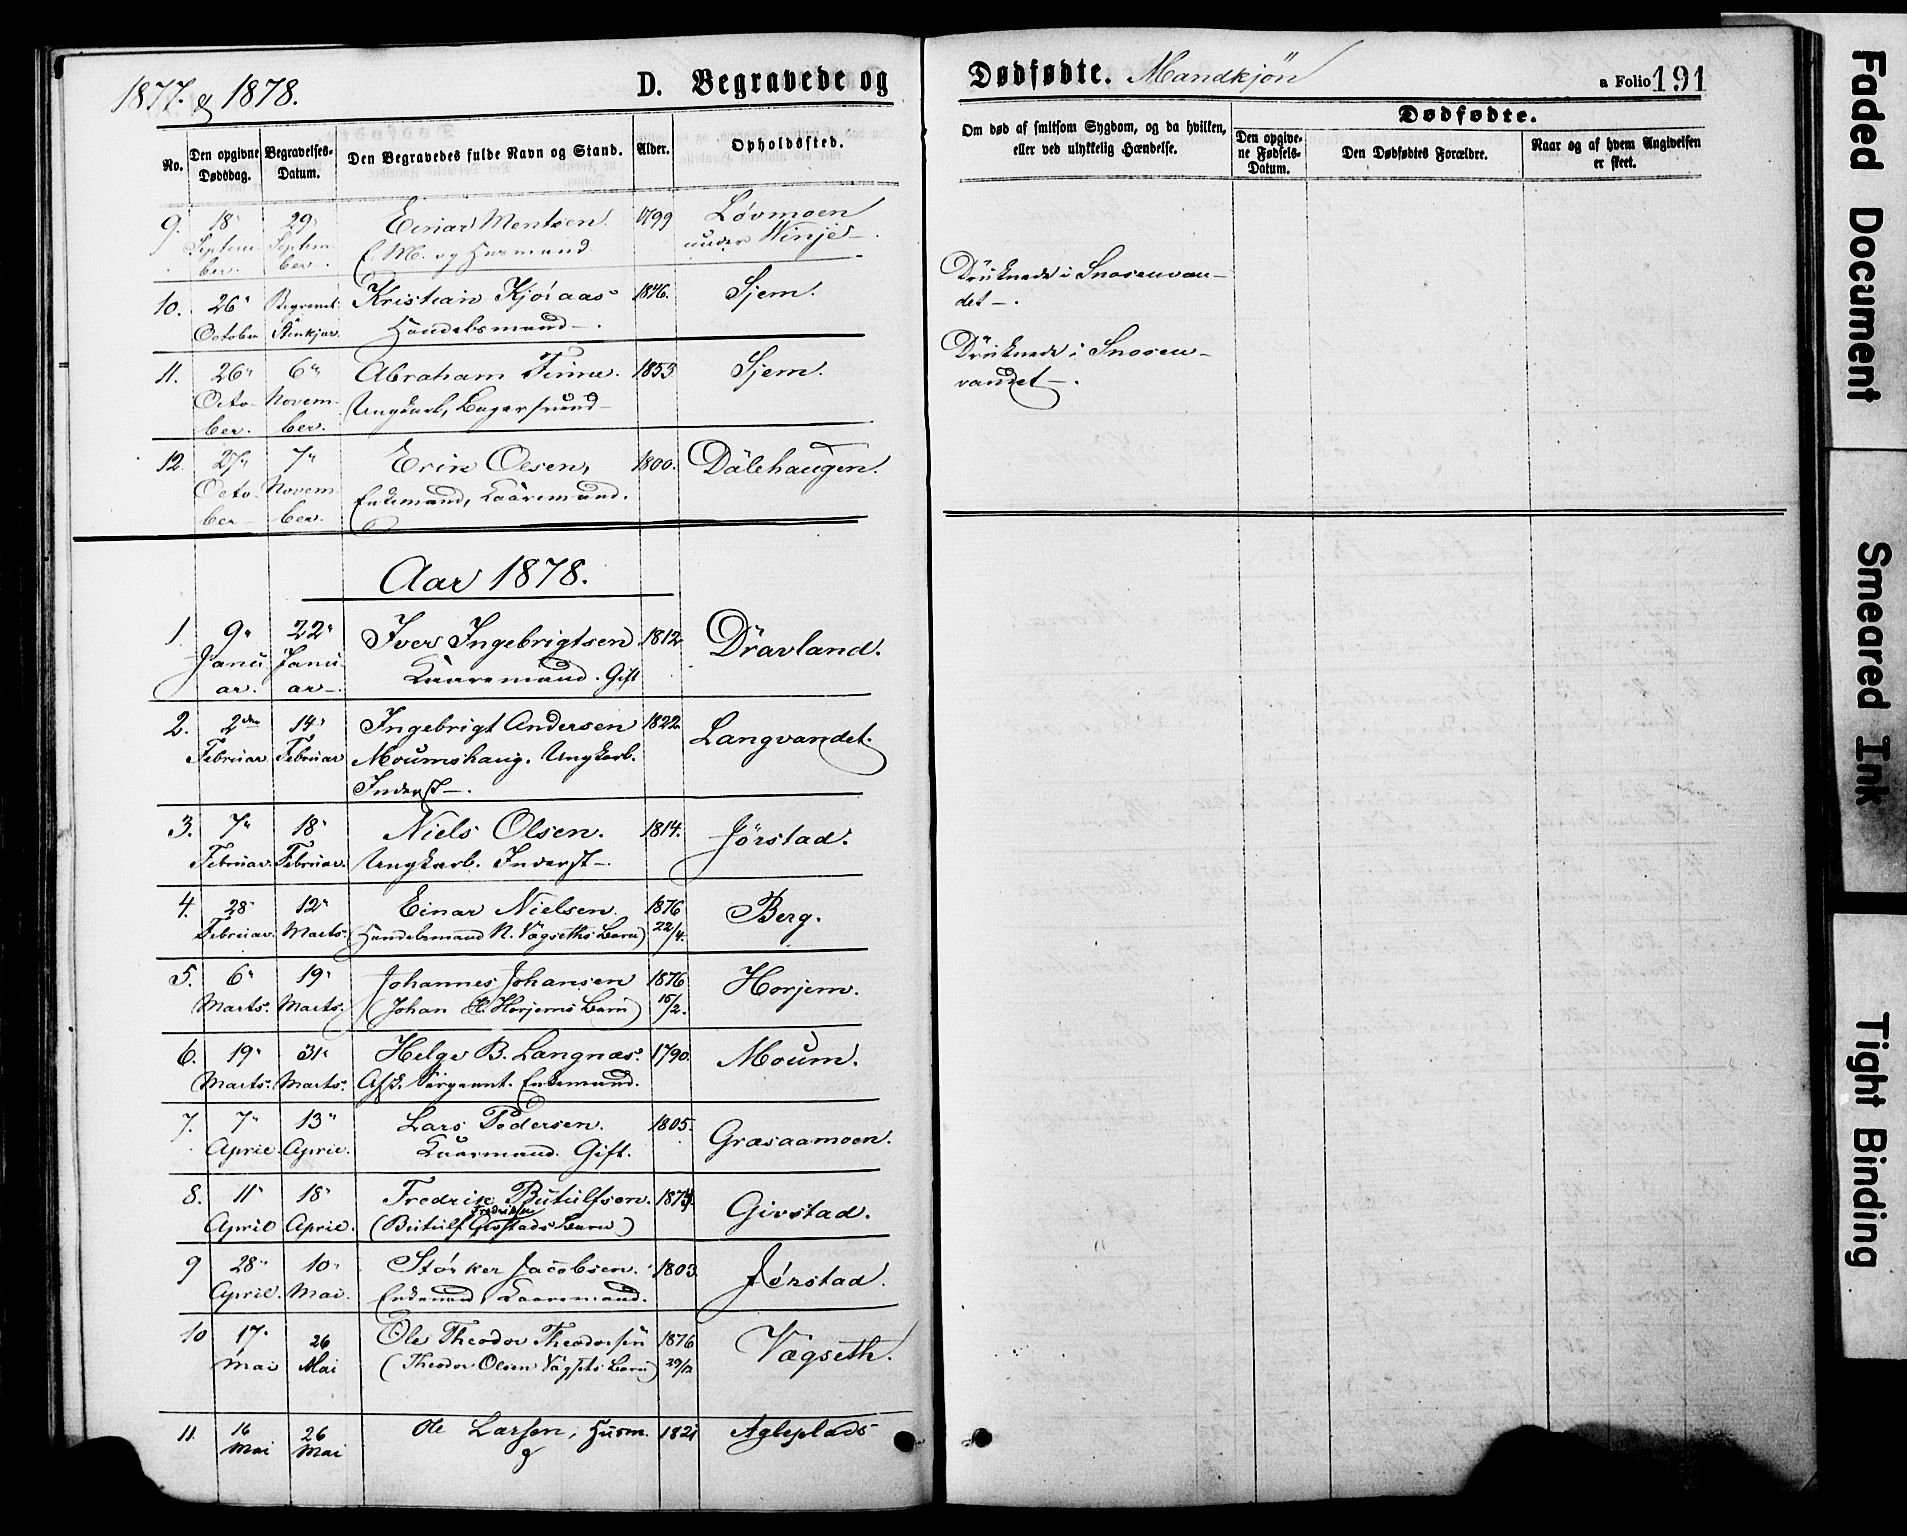 1877. & 1878.
D. Begravede og
Dødfødte. Mandkjøn
a Folio 191
No.
Den opgivne Dødsdag.
Begravelses-Datum.
Den Begravedes fulde Navn og Stand.
Alder.
Opholdssted.
Om død af smitsom Sygdom, og da hvilken,
eller ved ulykkelig Hændelse.
Dødfødte.
Den opgivne Fødsels-Datum.
Den Dødfødtes Forældre.
Naar og af hvem Angivelsen
er skeet.
9. 18" 29" Einar Mentsen 1799 Løvmoen
Septem Septem f. M. og Husmand under Winje
ber. ber.
10. 26" Begravet Kristian Kjøraas 1846. Sjem.
October Stenkjær Handelsmand
Druknede i Snosenvan-
det
11. 26" 6" Abraham Finne. 1855 Sjem.
Octo- Novem- Ungkarl,
ber. ber.
Druknede i Snosen-
vandet
12. 27" 7" Erik Olsen, 1800. Dalehaugen.
Octo- Novem Enkemand, Kaaremand.
ber ber.
Aar 1878.
1. 9" 22" Iver Ingebrigtsen 1812 Dravland.
Janu Janu Kaaremand. Gift
ar. ar
2. 2den 14" Ingebrigt Andersen 1822 Langvandet.
Februar Februar Moumshaug. Ungkarl.
Inderst
3. 7" 18" Niels Olsen. 1814. Jørstad.
Februar. Februar. Ungkarl. Inderst
4. 28" 12" Einar Nielsen. 1876 Berg.
Februar. Marts. (Handelsmand N. Vägseths Barn) 22/4.
5. 6" 19" Johannes Johansen 1876 Horjem.
Marts. Marts. (Johan E. Horjems Barn) 15/2.
6. 19" 31" Helge B. Langnæs. 1790. Moum.
Marts. Marts. Afsk. Sergeant. Enkemand.
7. 7" 13" Lars Pedersen. 1805. Græsaamoen.
April April. Kaarmand. Gift.
8. 11" 18" Fredrik Butulfsen. 1874. Givstad.
Fredriksen
April April. (Butulf Givstads Barn)
9 28" 10" Størker Jacobsen. 1803. Jørstad.
April. Mai. Enkemand, Kaaremand.
10 17" 26 Ole Theodor Theodorsen 1876 Vægseth.
Mai Mai (Theodor Olsen Vägsets Barn) 29/12
11. 16 26 Ole Larsen, Husm. 1821 Agleplads
Mai Mai
Faded Document
Smeared Ink
Tight Binding